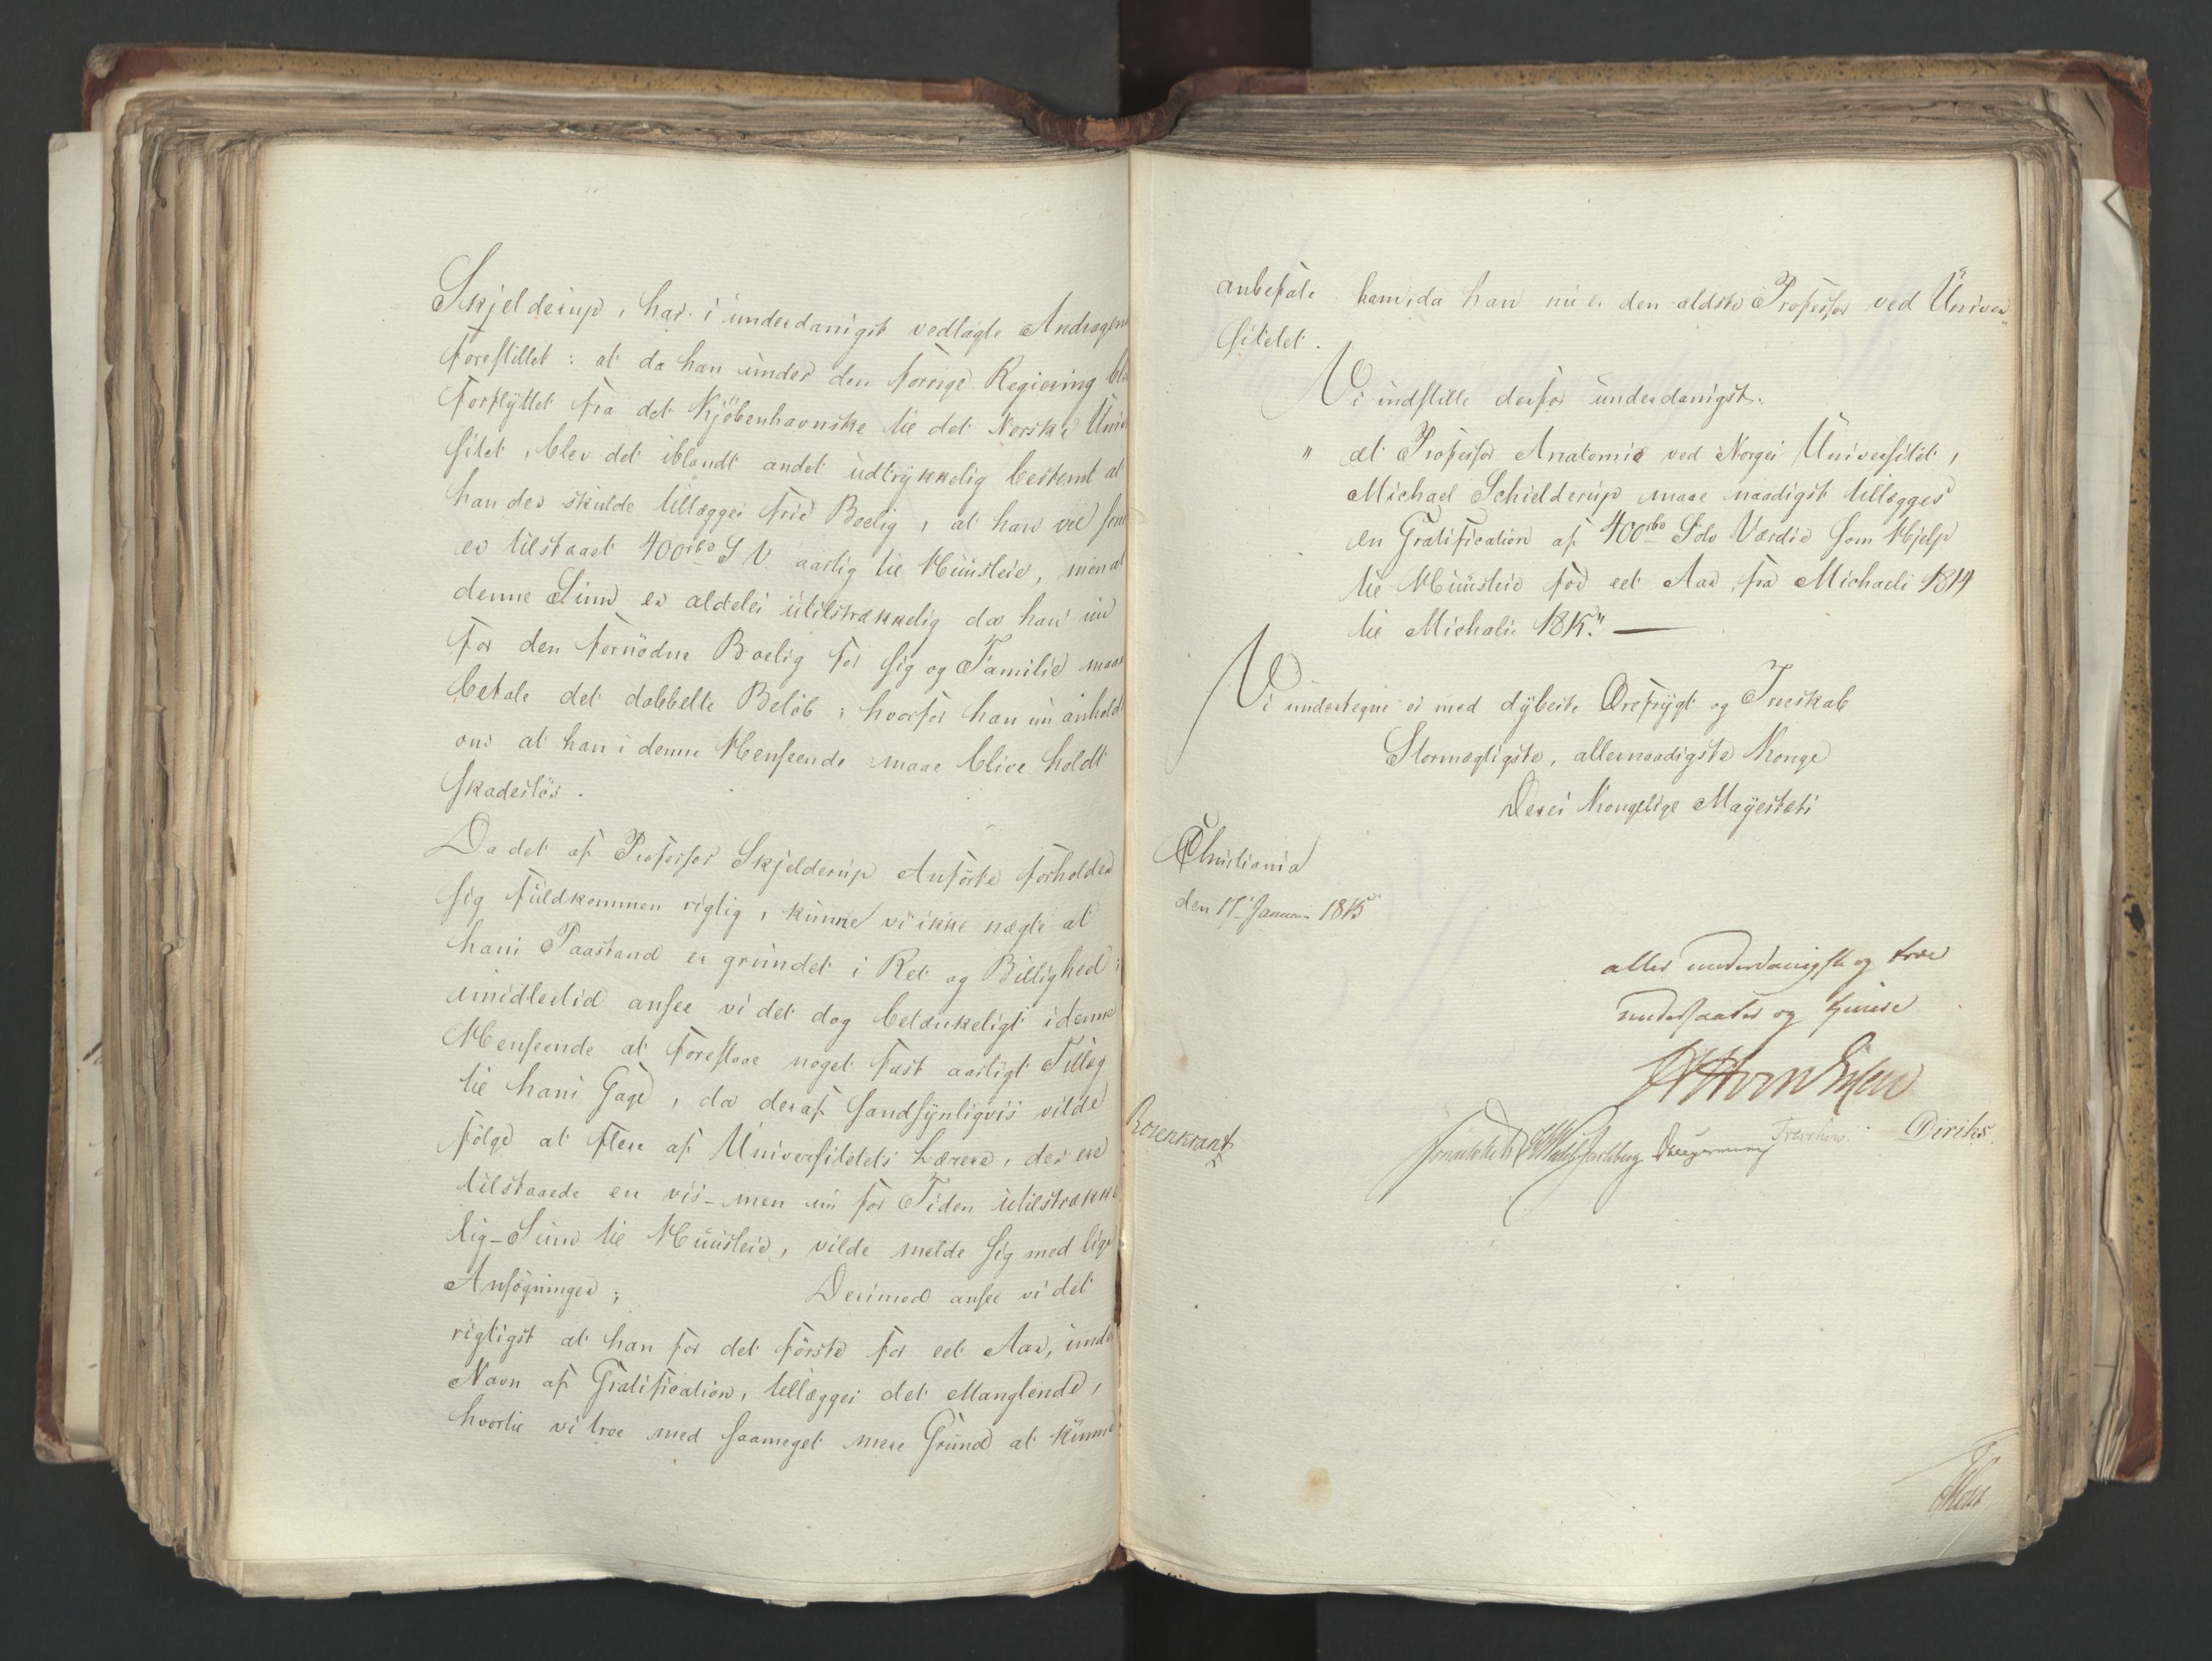 Skjelderup, har i underdanigst vedlagte Andragen
forestillet: at da han under den forrige Regiering ble
forflyttet fra det Kjöbenhavnske til det Norske Univ
sitet, blev det iblandt andet udtrykkelig bestemt at
han der skulde tillægges frie Boelig, at han vel sen
er tilstaaet 400 rbd S. V. aarlig til Huusleie, men at
denne Sum er aldeles utilstrækkelig da han nu
for den fornödne Boelig for sig og Familie maae
betale det dobbelte Belöb; hvorfor han nu anhold
om at han i denne Henseende maae blive holdt
skadeslös.
Da det af Professor Skjelderup Anförte forholder
sig fuldkommen rigtig, kunne vi ikke nægte at
hans Paastand er grundet i Ret og Billighed;
imidlertid ansee vi det dog betænkeligt i denne
Henseende at foreslaae noget fast aarligt Tillæg
til hans Gage, da deraf sandsynligviis vilde
fölge at flere af Universitetets Lærere, der ere
tilstaaede en vis - men nu for Tiden utilstrække
lig - Sum til Huusleie, vilde melde sig med lige
Ansögninger; Derimod ansee vi det
rigtigst at han for det förste for eet Aar, unde
Navn af Gratification, tillægges det Manglende,
hvortil vi troe med saameget mere Grund at kunne
anbefale ham, da han nu er den ældste Professor ved Univer„
sitetet.
Vi indstille derfor underdanigst:
" at Professor Anatomiæ ved Norges Universitet,
Michael Schielderup maae naadigst tillægges
en Gratification af 400 rbd Sölv Værdie som Hjelp
til Huusleie for eet Aar, fra Michaeli 1814
til Michalii 1815." —
Vi undertegne os med dybeste Ærefrygt og Troeskab
Stormægtigste, allernaadigste Konge
Deres Kongelige Mayestæts
Christiania
den 17 Januari 1815
aller underdanigste og troe
undersaatter og tjenere
Rosenkrantz
Treschow
Diriks